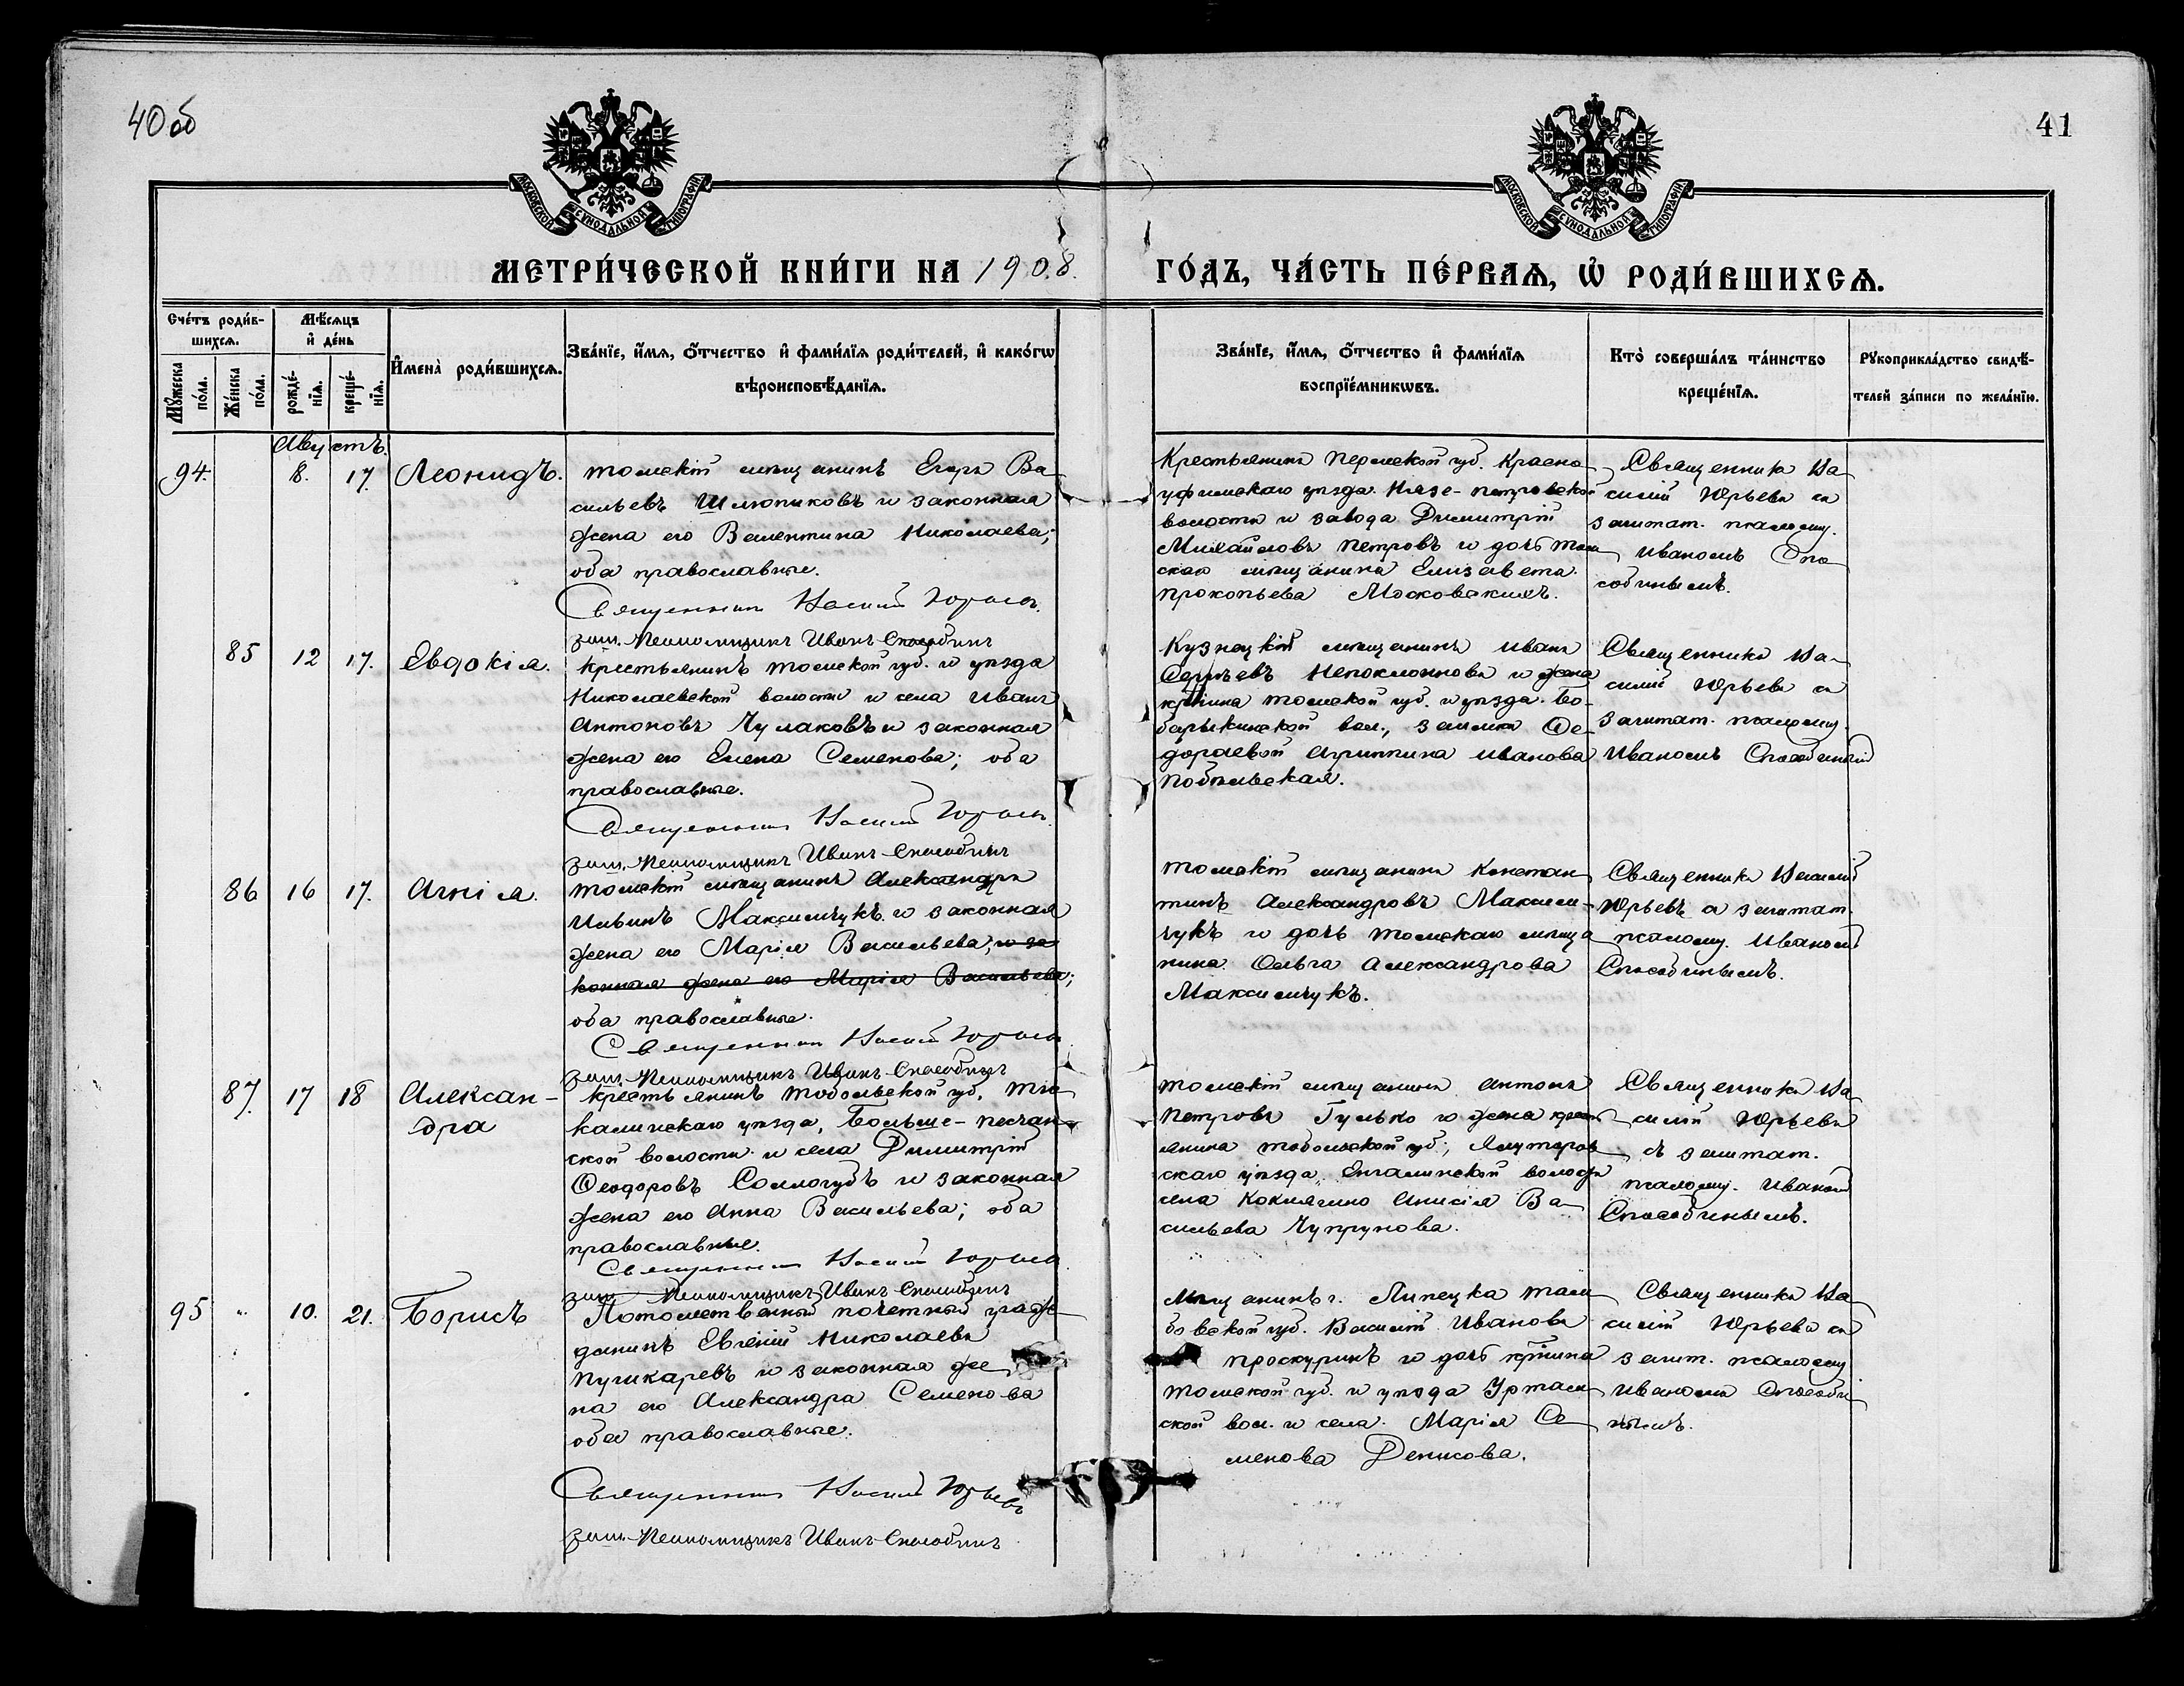 40 об
41
МОСКОВСКОЙ СѴНОДАЛЬНОЙ ТИПОГРАФІИ
МОСКОВСКОЙ СѴНОДАЛЬНОЙ ТИПОГРАФІИ
МЕТРИ́ЧЕСКОЙ КНИ́ГИ НА 1908. ГО́ДЪ, ЧА́СТЬ ПЕ́РВАѦ, Ѡ҆ РОДИ́ВШИХСѦ.
Сче́тъ роди́в-
шихсѧ.
Мꙋ́жеска по́ла.
Же́нска по́ла.
Мѣ́сѧцъ
и҆ де́нь
рожде́-нїѧ.
креще́-нїѧ.
И҆мена̀ роди́вшихсѧ.
Зва́нїе, и҆́мѧ, ѻ҆́тчество и҆ фами́лїѧ роди́телей, и҆ како́гѡ
вѣроисповѣ́данїѧ.
Зва́нїе, и҆́мѧ, ѻ҆́тчество и҆ фами́лїѧ
воспрїе́мникѡвъ.
Кто̀ соверша́лъ та́инство
креще́нїѧ.
Рꙋкоприкла́дство свидѣ́-
телей за́писи по жела́нїю.
Августъ.
94. 8. 17. Леонидъ.
Томскій мѣщанинъ Егоръ Ва
сильевъ Шлюпиковъ и законная
жена его Валентина Николаева;
оба православные.
Священникъ Василій Юрьевъ.
зашт. Псаломщикъ Иванъ Способинъ
Крестьянинъ Пермской губ. Красно
уфимскаго уѣзда. Нязе-петровской
волости и завода Димитрій
Михайловъ Петровъ и дочь том
скаго мѣщанина Елизавета
Прокопьева Московскихъ.
Священникъ Ва
силій Юрьевъ съ
заштат. псаломщ.
Иваномъ Спо
собинымъ.
85 12 17. Евдокія.
Крестьянинъ Томской губ. и уѣзда
Николаевской волости и села Иванъ
Антоновъ Чулаковъ и законная
жена его Елена Семенова; оба
православные.
Священникъ Василій Юрьевъ.
зашт. Псаломщикъ Иванъ Способинъ
Кузнецкій мѣщанинъ Иванъ
Сергѣевъ Непоклонновъ и жена
кр҃нина Томской губ. и уѣзда. Бо-
барыкинской вол., заимки Ѳе-
дораевой Агриппина Иванова
Подѣльская.
Священникъ Ва
силій Юрьевъ съ
заштат. псаломщ.
Иваномъ Способинымъ
86 16 17. Агнія.
Томскій мѣщанинъ Александръ
Ильинъ Максимчукъ и законная
жена его Марія Васильева, и за
конная жена его Марія Васильева;
оба православные.
Священникъ Василій Юрьевъ
зашт. Псаломщикъ Иванъ Способинъ
Томскій мѣщанинъ Констан
тинъ Александровъ Максим-
чукъ и дочь томскаго мѣща
нина Ольга Александрова
Максимчукъ.
Священникъ Василій
Юрьевъ съ заштат.
псаломщ. Иваномъ
Способинымъ.
87. 17 18 Алексан-
дра
Крестьянинъ Тобольской губ, Тю
калинскаго уѣзда, Больше-песчан
ской волости и села Димитрій
Ѳеодоровъ Соллогубъ и законная
жена его Анна Васильева; оба
православные.
Священникъ Василій Юрьевъ
зашт. Псаломщикъ Иванъ Способинъ
Томскій мѣщанинъ Антонъ
Петровъ Гулько и жена крест
янина тобольской губ; Ялуторов
скаго уѣзда, Емгалинской волости
села Коклягино Анисія Ва
сильева Чупрунова.
Священникъ Ва
силій Юрьевъ
съ заштат.
псаломщ. Иваномъ
Способинымъ.
95 „ 10. 21. Борисъ
Потомственный почетный граж
данинъ Евгеній Николаевъ
Пушкаревъ и законная же
на его Александра Семенова
оба православные.
Священникъ Василій Юрьевъ
зашт. Псаломщикъ Иванъ Способинъ
Мѣщанинъ г. Липецка Там
бовской губ. Василій Ивановъ
Проскуринъ и дочь кр҃тнина
Томской губ. и уѣзда Уртам
ской вол. и села. Марія Се
менова Денисова.
Священникъ Ва
силій Юрьевъ съ
зашт. псаломщ
Иваномъ Способи
нымъ.